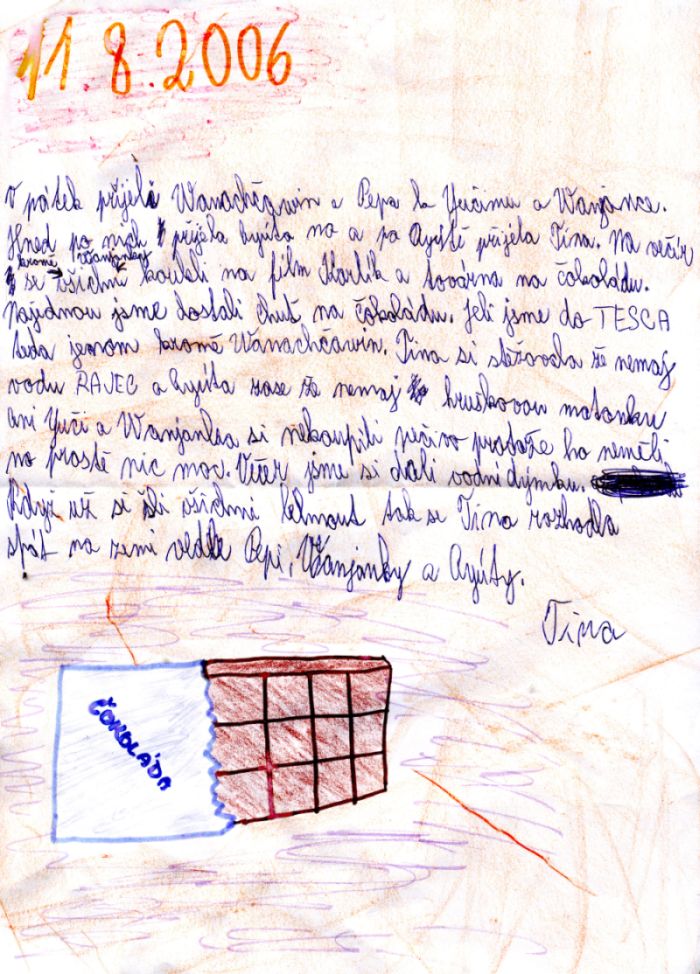 11.8.2006
V pátek přijeli Wanachčawin a Pepa k Yučimu a Wanjance.
Hned po nich přijela Ayúta no a po Ayútě přijela Tina. Na večír
kromě Wanjanky
se všichni koukli na film Karlík a továrna na čokoládu.
Najednou jsme dostali chuť na čokoládu. Jeli jsme do TESCA
teda jenom kromě Wanachčawin. Tina si stěžovala že nemaj
vodu RAJEC a Ayúta zase že nemaj hruškovou matonku
ani Yuči a Wanjanka si nekoupili pečivo protože ho neměli
no prostě nic moc. Večír jsme si dali vodní dýmku.
Když už si šli všichni lehnout tak se Tina rozhodla
spát na zemi vedle Pepi, Wanjanky a Ayúty.
Tina
ČOKOLÁDA